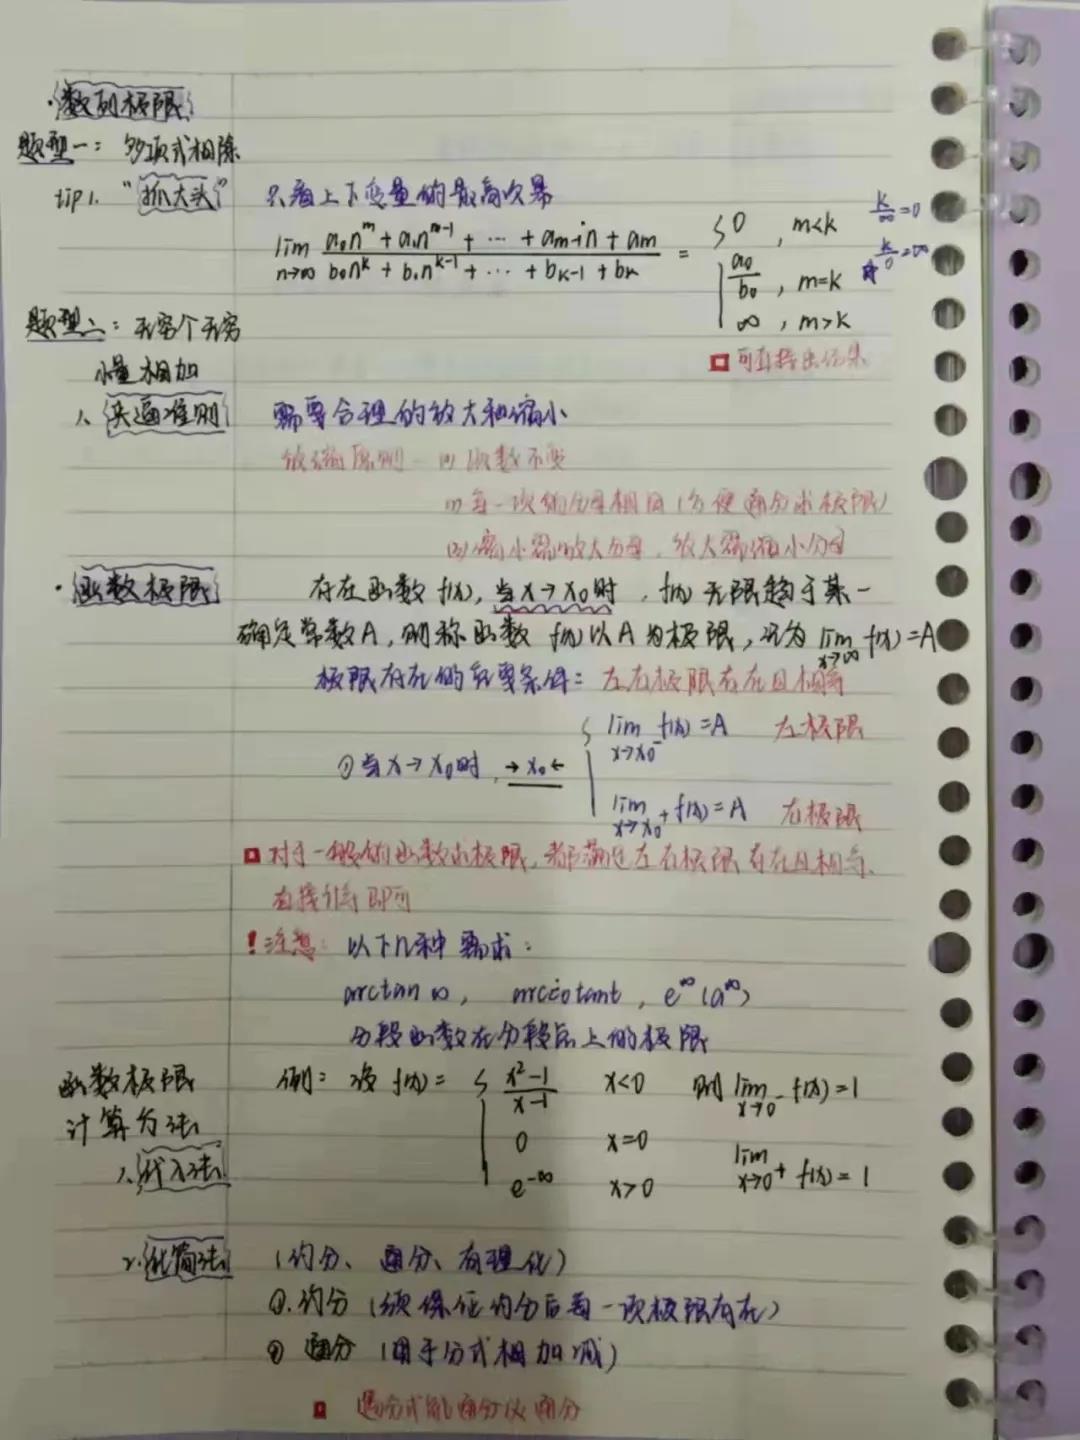 ·数列极限
题型一：多项式相除
tip1. "抓大头" 只看上下变量的最高次幂
lim n→∞ (a₀n^m + a₁n^(m-1) + ··· + a_(m-1)n + a_m) / (b₀n^k + b₁n^(k-1) + ··· + b_(k-1) + b_k) = { 0 , m<k
a₀/b₀ , m=k
∞ , m>k
k/∞=0
k/0=∞
可直接出结果
题型二：无穷个无穷
小量相加
1、夹逼准则 需要合理的放大和缩小
放缩原则 — (1) 次数不变
(2) 每一项的分母相同(方便通分求极限)
(3) 缩小需放大分母，放大需缩小分母
·函数极限 存在函数 f(x), 当 x→x₀时，f(x) 无限趋于某一
确定常数A, 则称函数 f(x) 以 A 为极限，记为 lim x→∞ f(x)=A
极限存在的充要条件：左右极限存在且相等
lim x→x₀⁻ f(x)=A 左极限
①当 x→x₀时, →x₀←
lim x→x₀⁺ f(x)=A 右极限
对于一般的函数求极限，都满足左右极限存在且相等、
直接代 即可
！注意：以下几种需求：
arctan ∞, arccotant, e^∞ (a^∞)
分段函数在分段点上的极限
函数极限
计算方法
1、代入法
例：设 f(x) = { (x²-1)/(x-1) x<0 则 lim x→0⁻ f(x)=1
0 x=0
e^(-∞) x>0 lim x→0⁺ f(x)=1
2.化简法 (约分、通分、有理化)
①.约分 (须保证约分后每一项极限存在)
② 通分 (用于分式相加减)
遇分式能通分必通分